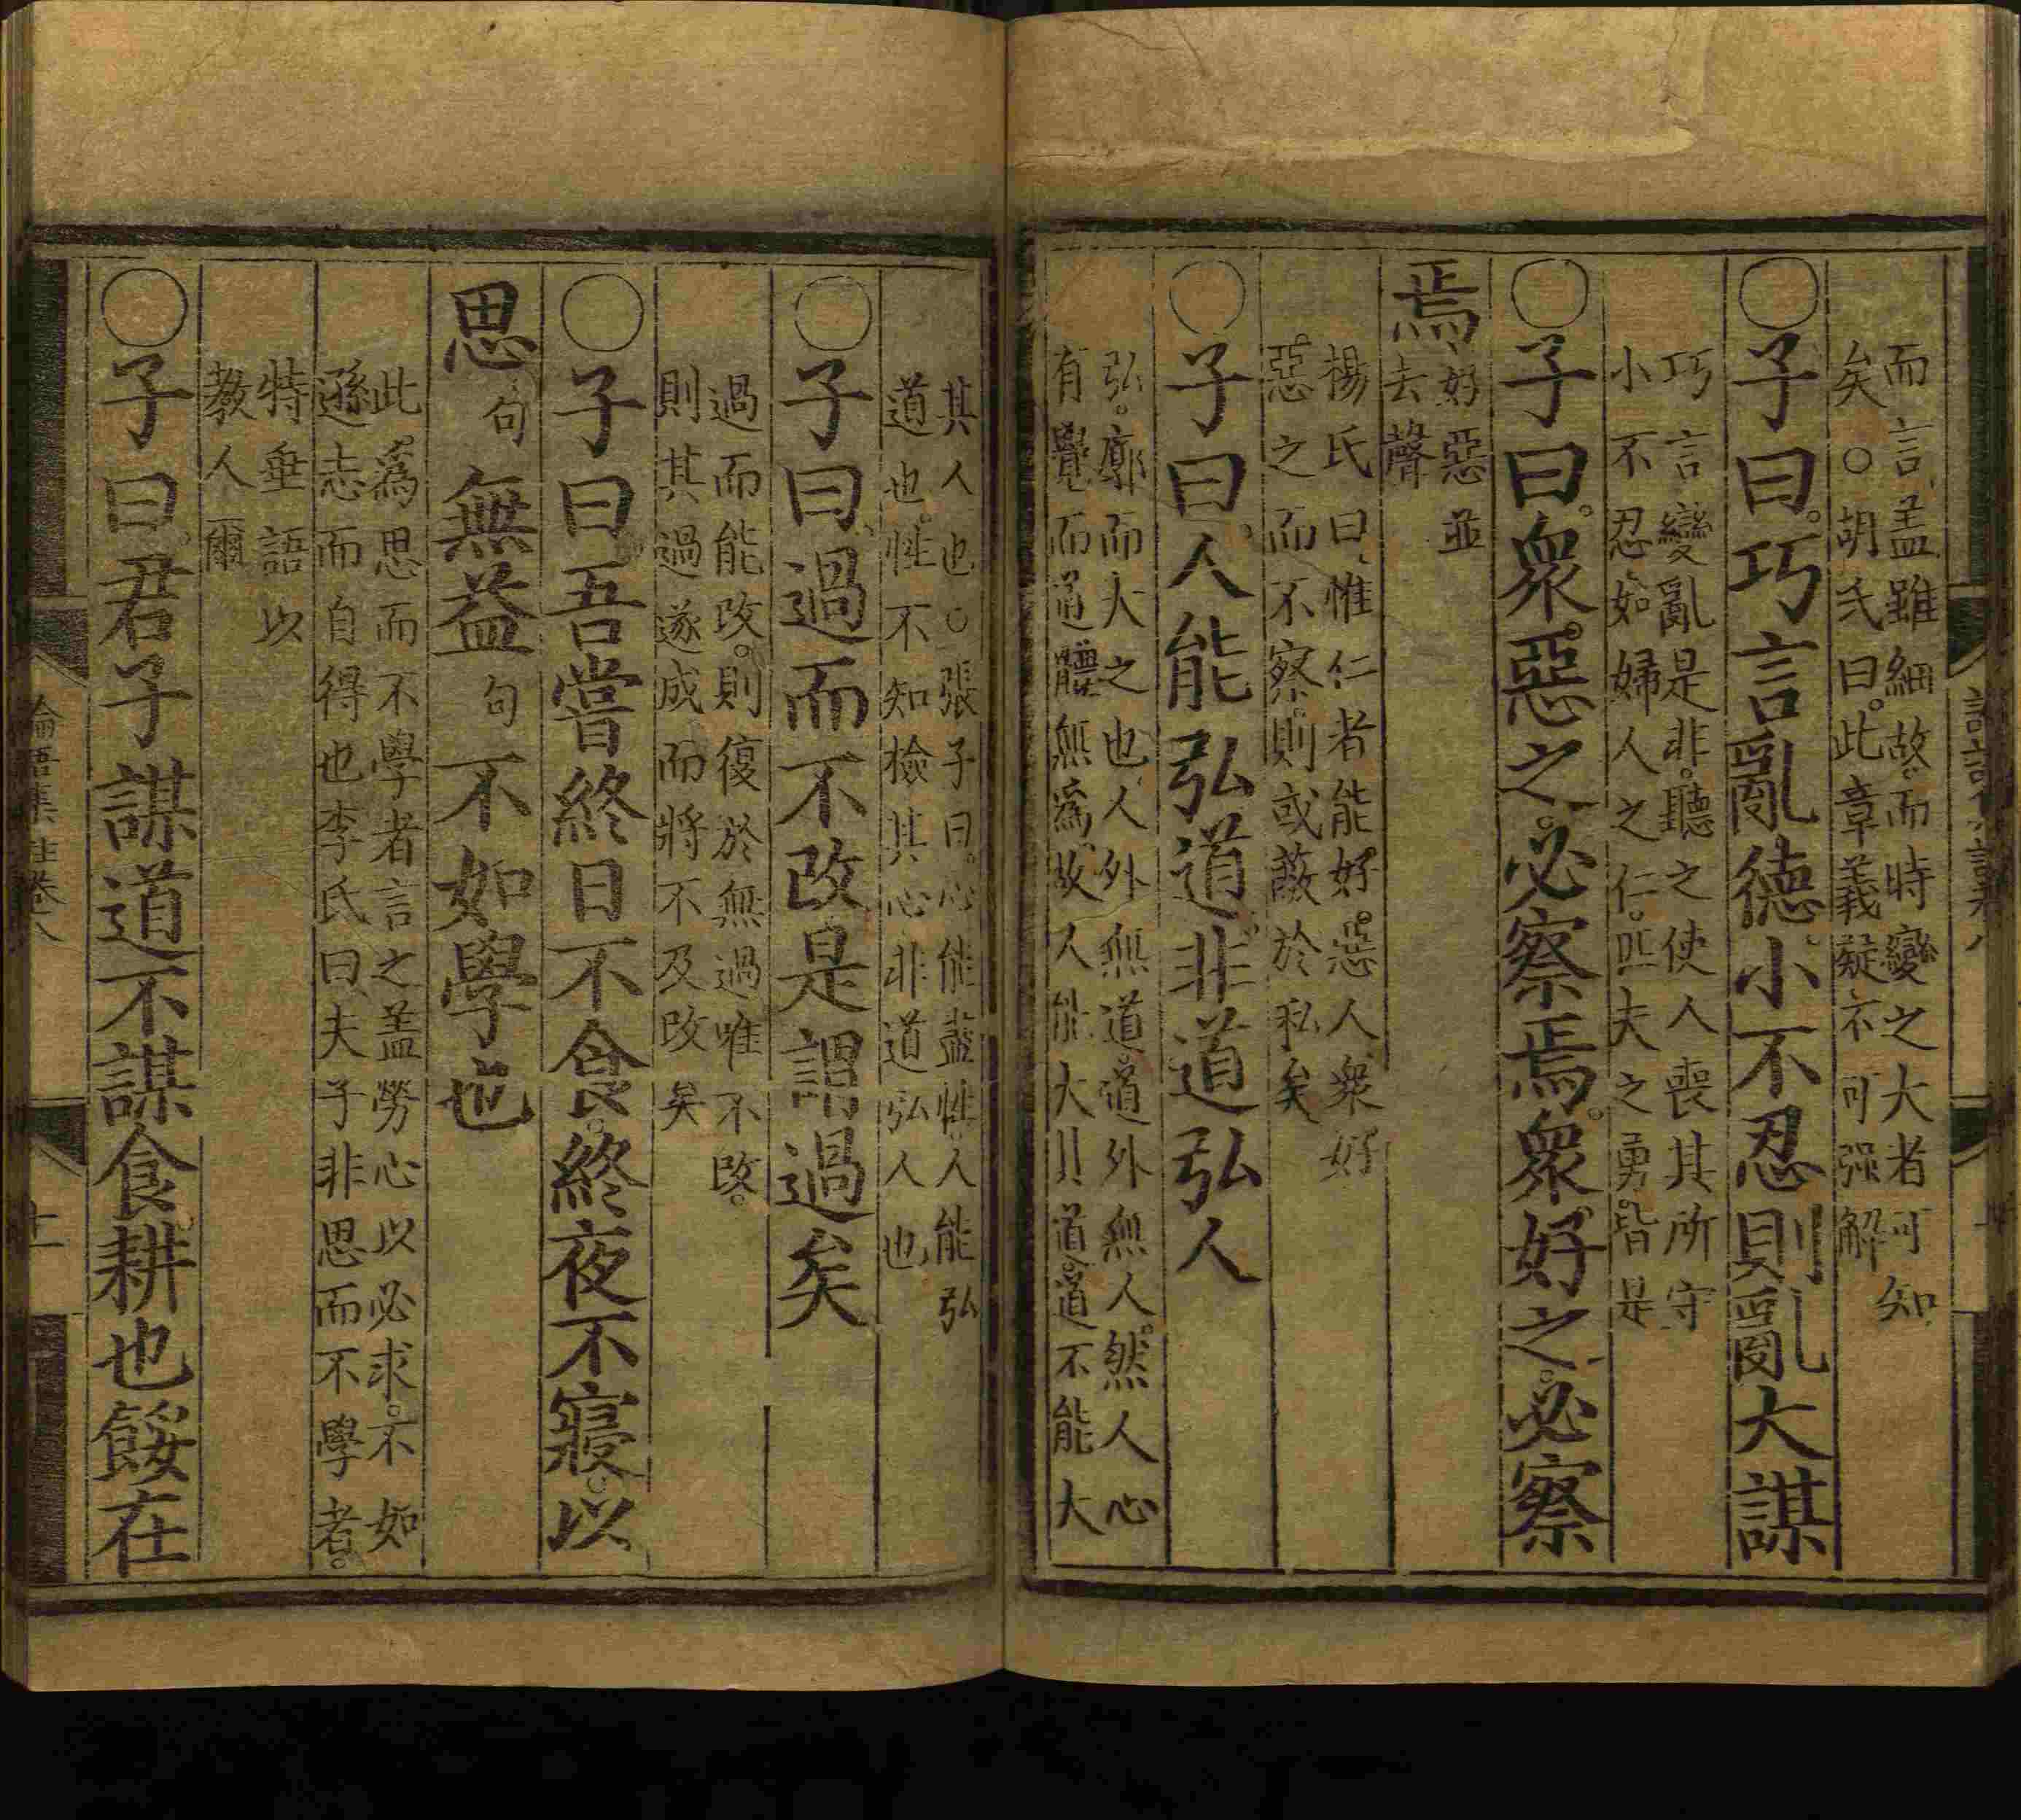 而言盖雖細故而時變之大者可知
矣○胡氏曰此章義疑不可强解
○子曰巧言亂德小不忍則亂大謀
巧言變亂是非聽之使人喪其所守
小不忍如婦人之仁匹夫之勇皆是
○子曰衆惡之必察焉衆好之必察
焉
好惡並
去聲
楊氏曰惟仁者能好惡人衆好
惡之而不察則或蔽於私矣
○子曰人能弘道非道弘人
弘廓而大之也人外無道道外無人然人心
有覺而道體無爲故人能大其道道不能大
其人也○張子曰心能盡性人能弘
道也性不知檢其心非道弘人也
○子曰過而不改是謂過矣
過而能改則復於無過唯不改
則其過遂成而將不及改矣
○子曰吾嘗終日不食終夜不寢以
思句無益句不如學也
此爲思而不學者言之盖勞心以必求不如
遜志而自得也李氏曰夫子非思而不學者
特垂語以
教人爾
○子曰君子謀道不謀食耕也餒在
論語集註卷八
十一